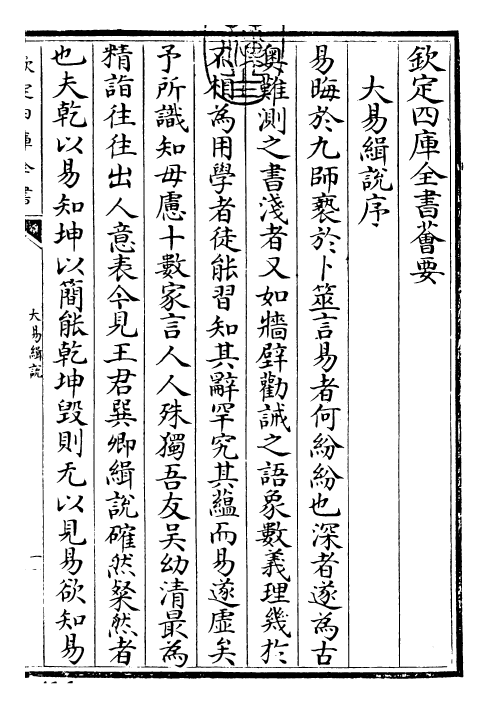 欽定四庫全書薈要
大易緝說序
易晦於九師褻於卜筮言易者何紛紛也深者遂為古
奧難測之書淺者又如牆壁勸誡之語象數義理幾於
不相為用學者徒能習知其辭罕究其蘊而易遂虛矣
予所識知毋慮十數家言人人殊獨吾友吳幼清最為
精詣往往出人意表今見王君巽卿緝說確然粲然者
也夫乾以易知坤以簡能乾坤毀則无以見易欲知易
大易緝說
一